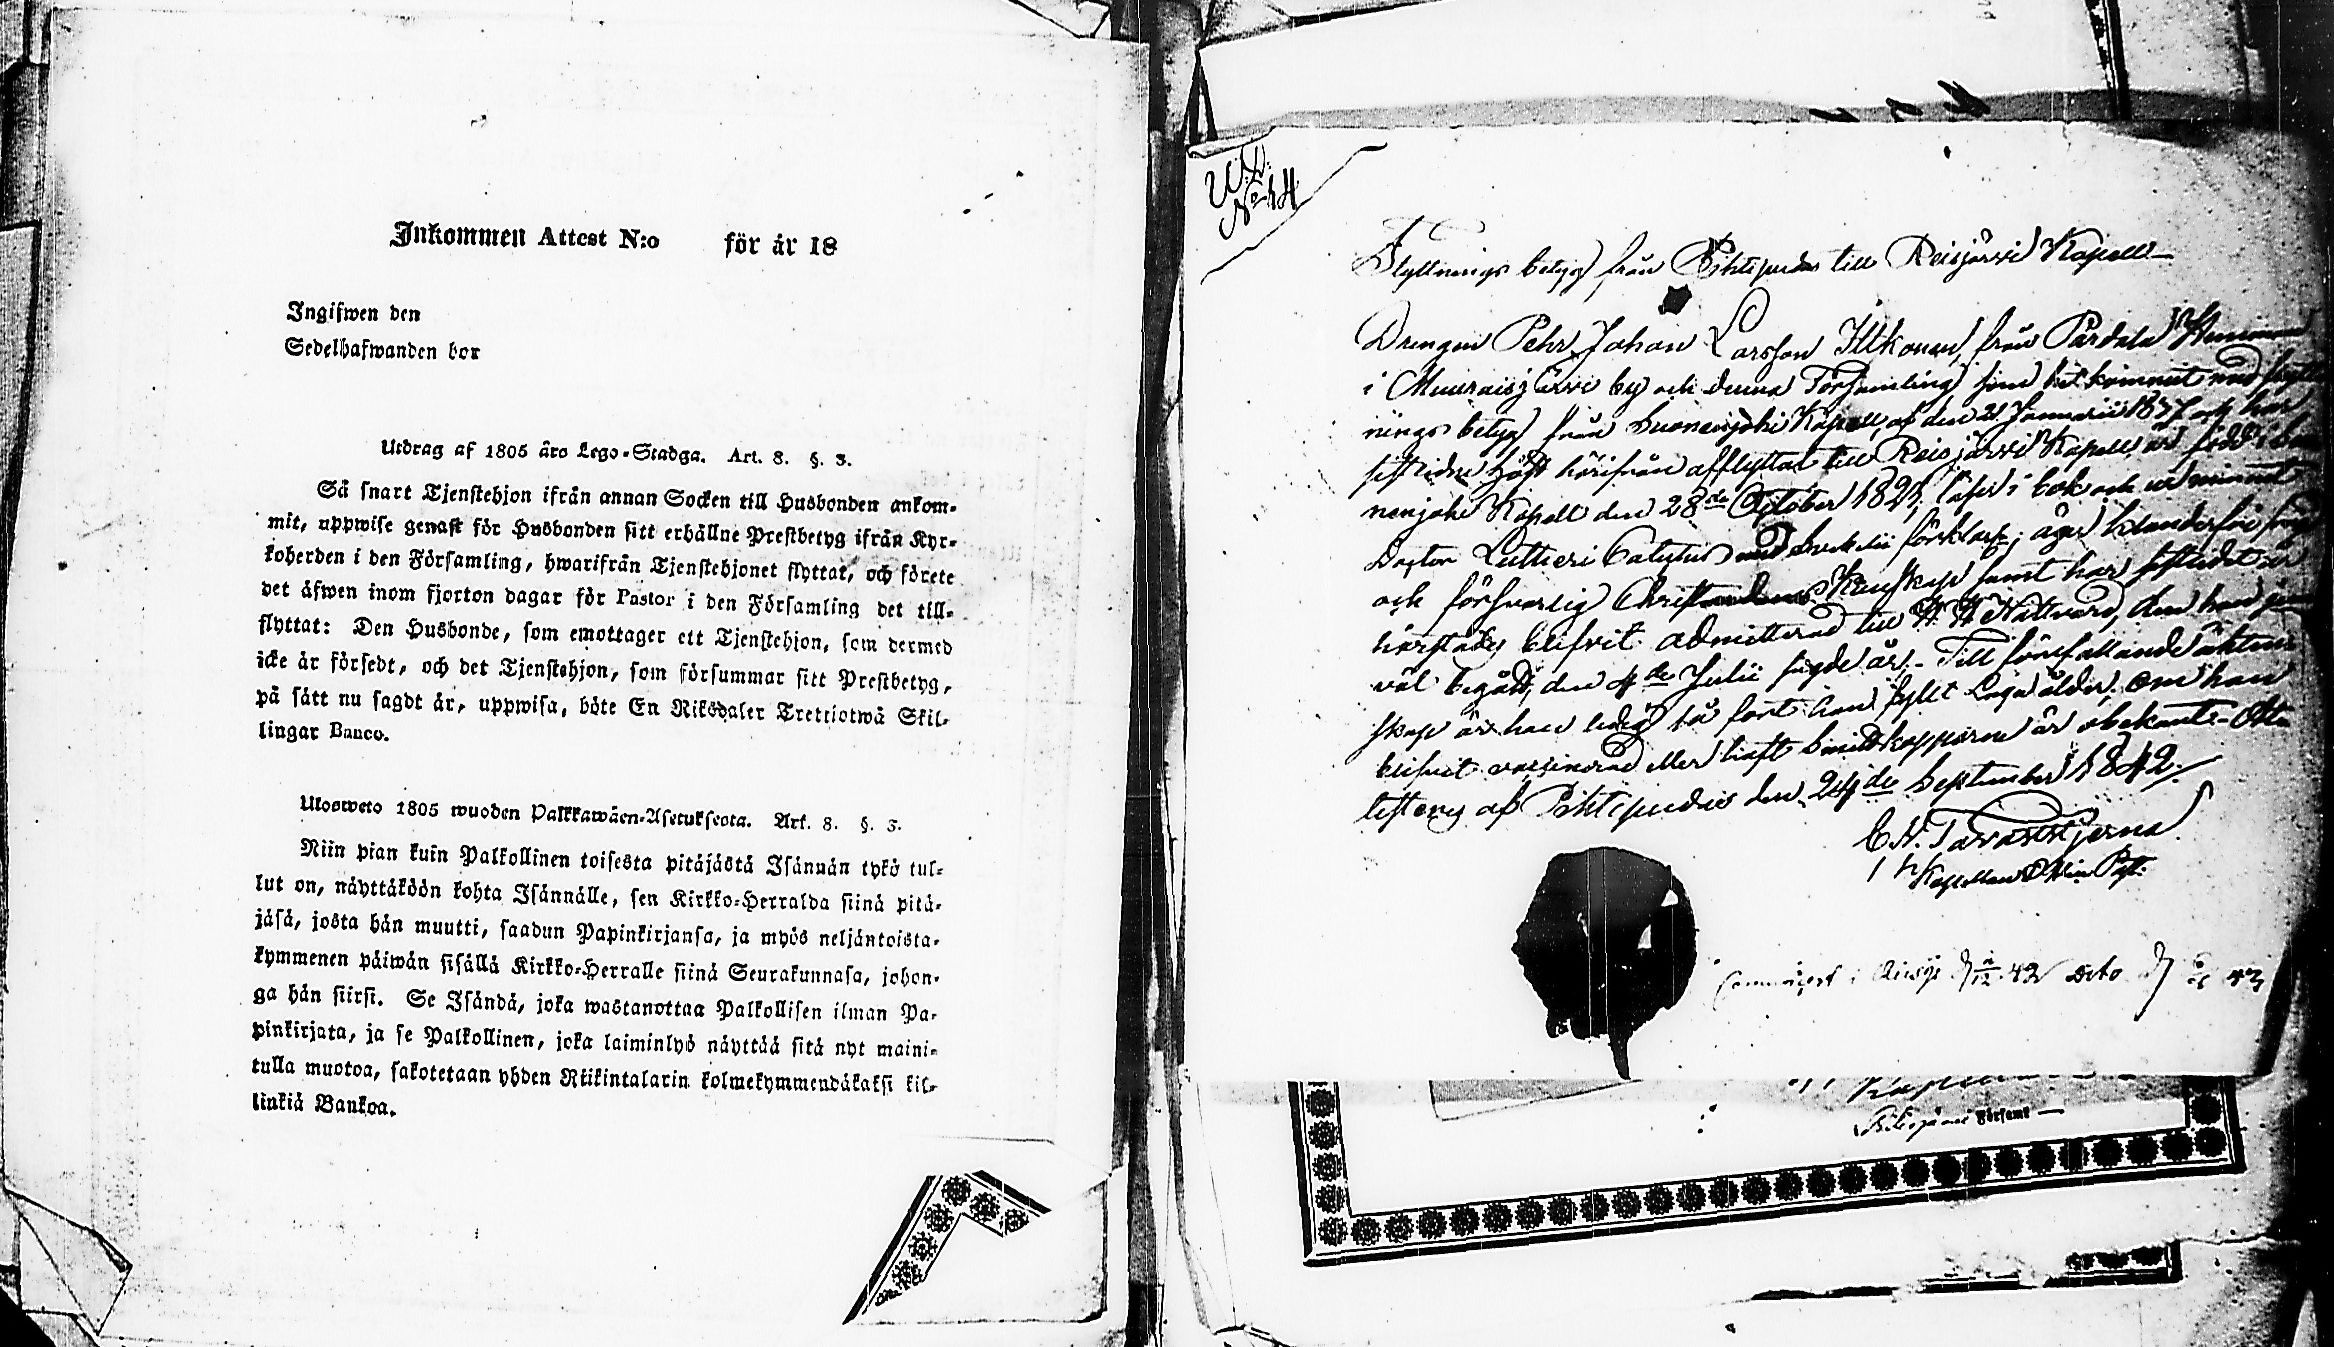 Inkommen Attest N:o för år 18
Ingifwen den
Sedelhafwanden bor
Utdrag af 1805 års Lego-Stadga. Art. 8. §. 3.
Så snart Tjenstehjon ifrån annan Socken till Husbonden ankom-
mit, uppwise genast för Husbonden sitt erhållne Prestbetyg ifrån Kyr-
koherden i den Församling, hwarifrån Tjenstehjonet flyttat, och förete
det äfwen inom fjorton dagar för Pastor i den Församling det till-
flyttat: Den Husbonde, som emottager ett Tjenstehjon, som dermed
icke är försedt, och det Tjenstehjon, som försummar sitt Prestbetyg,
på sätt nu sagdt är, uppwisa, böte En Riksdaler Trettiotwå Skil-
lingar Banco.
Ulosweto 1805 wuoden Palkkawäen-Asetuksesta. Art. 8. §. 3.
Niin pian kuin Palkollinen toisesta pitäjästä Isännän tykö tul-
lut on, näyttäköön kohta Isännälle, sen Kirkko-Herralda siinä pitä-
jäsä, josta hän muutti, saadun Papinkirjansa, ja myös neljäntoista-
kymmenen päiwän sisällä Kirkko-Herralle siinä Seurakunnasa, johon-
ga hän siirsi. Se Isändä, joka wastanottaa Palkollisen ilman Pa-
pinkirjata, ja se Palkollinen, joka laiminlyö näyttää sitä nyt maini-
tulla muotoa, sakotetaan yhden Riikintalarin kolmekymmendäkaksi kil-
linkiä Bankoa.
N:o 14
Flyttnings betyg från Pihtipudas till Reisjärvi Kapell
Drengen Pehr Johan Larsson Ilkonen, från Pärdala
i Muuraisjärvi by och denna Församling som hit kommit med flytt
nings betyg från Suonenjoki Kapell, af den 21 Januarii och har
sistlidne höst härifrån afflyttat till Reisjärvi Kapell, är född i Suo
nenjoki Kapell den 28de October 1821, läser i bok och ur minnet
Doctor Lutheri Catechis med förklar; äger klanderfri frejd
och försvarlig Christendoms Kunskap samt har sistledit år
härstädes blifvit admitterad till H. H. Nattvard, den han jem
väl begått, den 4de Julii sagde år. Till förefallande äkten
skap är han ledig så fort han fyllt Laga ålder; om han
blifvit vaccinerad eller haft Smittkopporne är obekant. Atte
steras af Pihtipudas den 24de September 1842.
C. N. Tavaststjerna
Kapellan
Communicerat i 12 42 dito 43
Församl